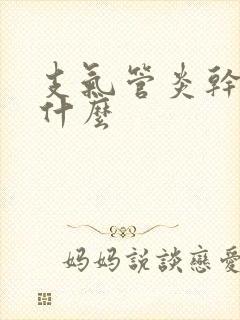 支氣管炎幹
什麼
媽媽説談戀愛